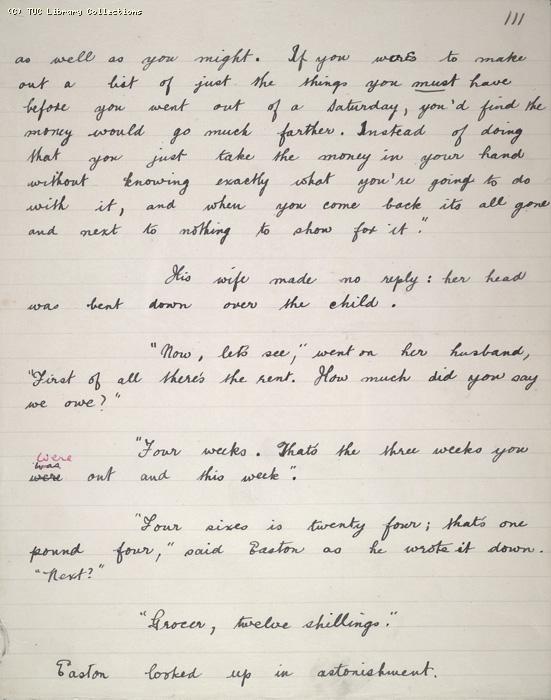 (C) TUC Library Collections
111
as well as you might. If you were to make
out a list of just the things you must have
before you went out of a Saturday, you'd find the
money would go much farther. Instead of doing
that you just take the money in your hand
without knowing exactly what you're going to do
with it, and when you come back its all gone
and next to nothing to show for it."
His wife made no reply: her head
was bent down over the child.
"Now, let's see," went on her husband,
"First of all there's the rent. How much did you say
we owe?"
"Four weeks. That's the three weeks you
were
was
were out and this week".
"Four sixes is twenty four; that's one
pound four," said Easton as he wrote it down.
"Next?"
"Grocer, twelve shillings."
Easton looked up in astonishment.